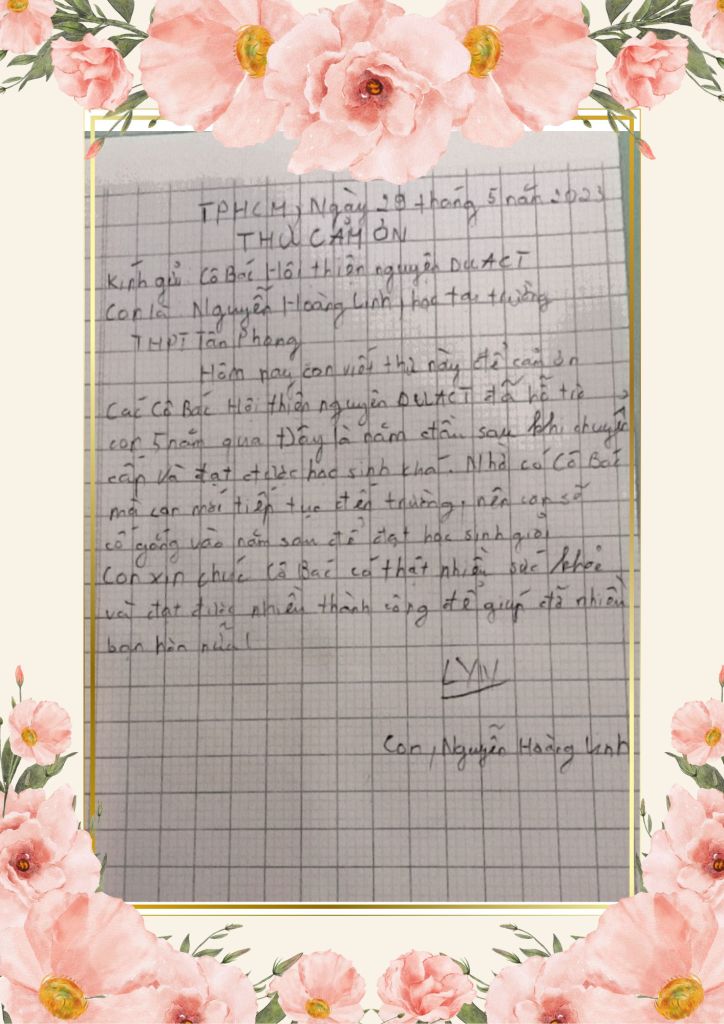 TPHCM, Ngày 29 tháng 5 năm 2023
THƯ CẢM ƠN
Kính gửi Cô Bác Hội thiện nguyện DULACT
Con là Nguyễn Hoàng Linh, học tại trường
THPT Tân Phong
Hôm nay con viết thư này để cảm ơn
Các Cô Bác Hội thiện nguyện DULACT đã hỗ trợ
con 5 năm qua. Đây là năm đầu sau khi chuyển
cấp và đạt được học sinh khá. Nhờ có Cô Bác
mà con mới tiếp tục đến trường, nên con sẽ
cố gắng vào năm sau để đạt học sinh giỏi
Con xin chúc Cô Bác có thật nhiều sức khỏe
và đạt được nhiều thành công để giúp đỡ nhiều
bạn hơn nữa!
Con, Nguyễn Hoàng Linh